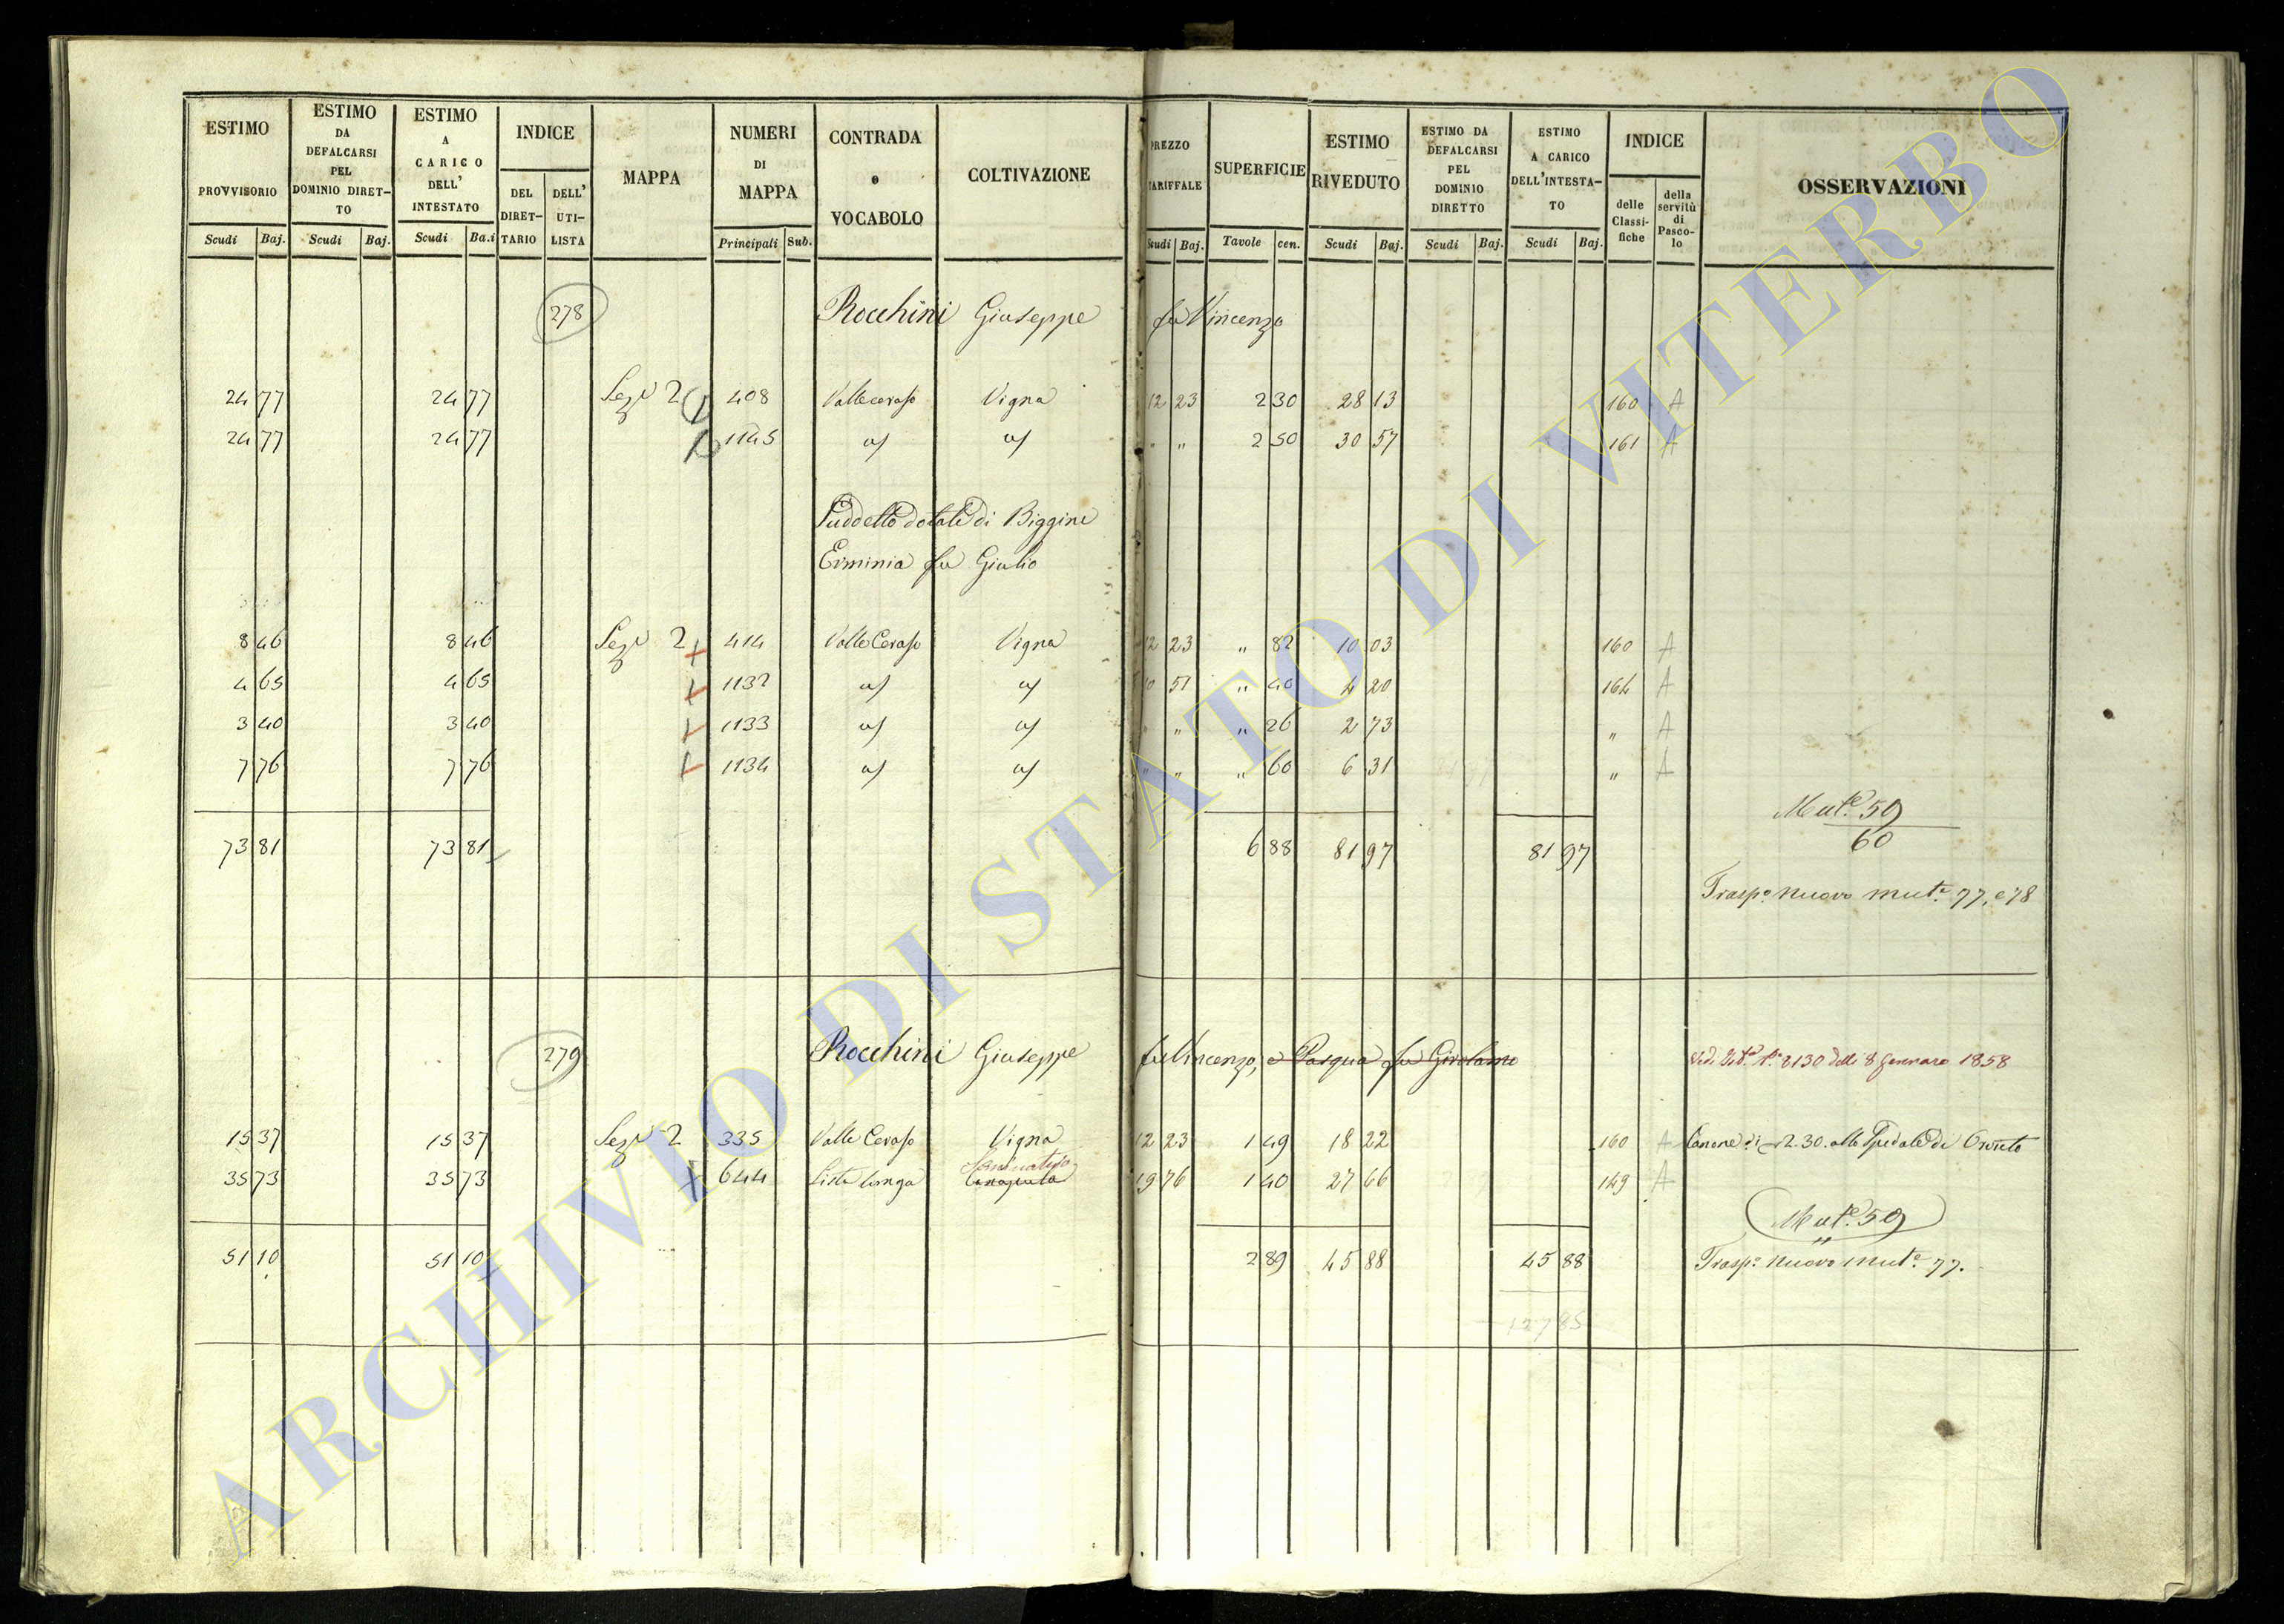 ESTIMO PROVVISORIO Scudi Baj.
ESTIMO DA DEFALCARSI PEL DOMINIO DIRETTO Scudi Baj.
ESTIMO A CARICO DELL' INTESTATO Scudi Ba.i
INDICE DEL DIRETTARIO DELL' UTILISTA
MAPPA
NUMERI DI MAPPA Principali Sub.
CONTRADA o VOCABOLO
COLTIVAZIONE
PREZZO TARIFFALE Scudi Baj.
SUPERFICIE Tavole cen.
ESTIMO RIVEDUTO Scudi Baj.
ESTIMO DA DEFALCARSI PEL DOMINIO DIRETTO Scudi Baj.
ESTIMO A CARICO DELL'INTESTATO Scudi Baj.
INDICE delle Classifiche della servitù di Pascolo
OSSERVAZIONI
278 Rocchini Giuseppe fu Vincenzo
24 77 24 77 Sez.e 2 408 Valleceraso Vigna 12 23 2 30 28 13 160 A
24 77 24 77 1145 a/ a/ " " 2 50 30 57 161 A
Suddetto dotale di Biggine
Erminia fu Giulio
8 46 8 46 Sez.e 2 414 Valle Ceraso Vigna 12 23 " 82 10 03 160 A
4 65 4 65 1132 a/ a/ 10 51 " 40 4 20 164 A
3 40 3 40 1133 a/ a/ " " " 26 2 73 " A
7 76 7 76 1134 a/ a/ " " " 60 6 31 " A
Mut.e 59
60
73 81 73 81 6 88 81 97 81 97
Trasp.o nuovo mut.e 77, e 78
279 Rocchini Giuseppe fu Vincenzo, e Pasqua fu Girolamo
8 Gennaro 1858
15 37 15 37 Sez.e 2 335 Valle Ceraso Vigna 12 23 1 49 18 22 160 A Canone di 2.30. allo Spedale di Orvieto
35 73 35 73 644 Lista lunga Seminativo 19 76 1 40 27 66 149 A
Mut.e 59
51 10 51 10 2 89 45 88 45 88
Trasp.o nuovo mut.e 77.
127 85
ARCHIVIO DI STATO DI VITERBO